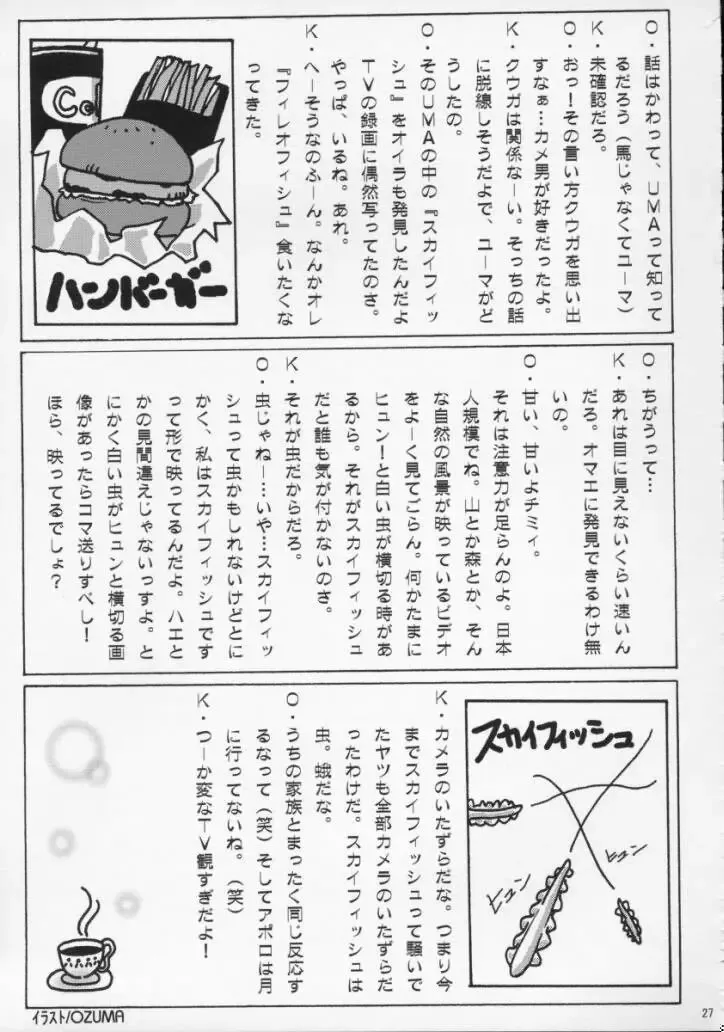 O・話はかわって、UMAって知って
るだろう(馬じゃなくてユーマ)
K・未確認だろ。
O・おっ!その言い方クウガを思い出
すなぁ…カメ男が好きだったよ。
K・クウガは関係なーい。そっちの話
に脱線しそうだよで、ユーマがど
うしたの。
O・そのUMAの中の『スカイフィッ
シュ』をオイラも発見したんだよ
TVの録画に偶然写ってたのさ。
やっぱ、いるね。あれ。
K・へーそうなのふーん。なんかオレ
『フィレオフィシュ』食いたくな
ってきた。
Co
ハンバーガー
O・ちがうって…
K・あれは目に見えないくらい速いん
だろ。オマエに発見できるわけ無
いの。
O・甘い、甘いよチミィ。
それは注意力が足らんのよ。日本
人規模でね。山とか森とか、そん
な自然の風景が映っているビデオ
をよーく見てごらん。何かたまに
ヒュン!と白い虫が横切る時があ
るから。それがスカイフィッシュ
だと誰も気が付かないのさ。
K・それが虫だからだろ。
O・虫じゃねー…いや…スカイフィッ
シュって虫かもしれないけどとに
かく、私はスカイフィッシュです
って形で映ってるんだよ。ハエと
かの見間違えじゃないっすよ。と
にかく白い虫がヒュンと横切る画
像があったらコマ送りすべし!
ほら、映ってるでしょ?
スカイフィッシュ
ヒュン
ヒュン
K・カメラのいたずらだな。つまり今
までスカイフィッシュって騒いで
たヤツも全部カメラのいたずらだ
ったわけだ。スカイフィッシュは
虫。蛾だな。
O・うちの家族とまったく同じ反応す
るなって(笑)そしてアポロは月
に行ってないね。(笑)
K・つーか変なTV観すぎだよ!
イラスト/OZUMA
27